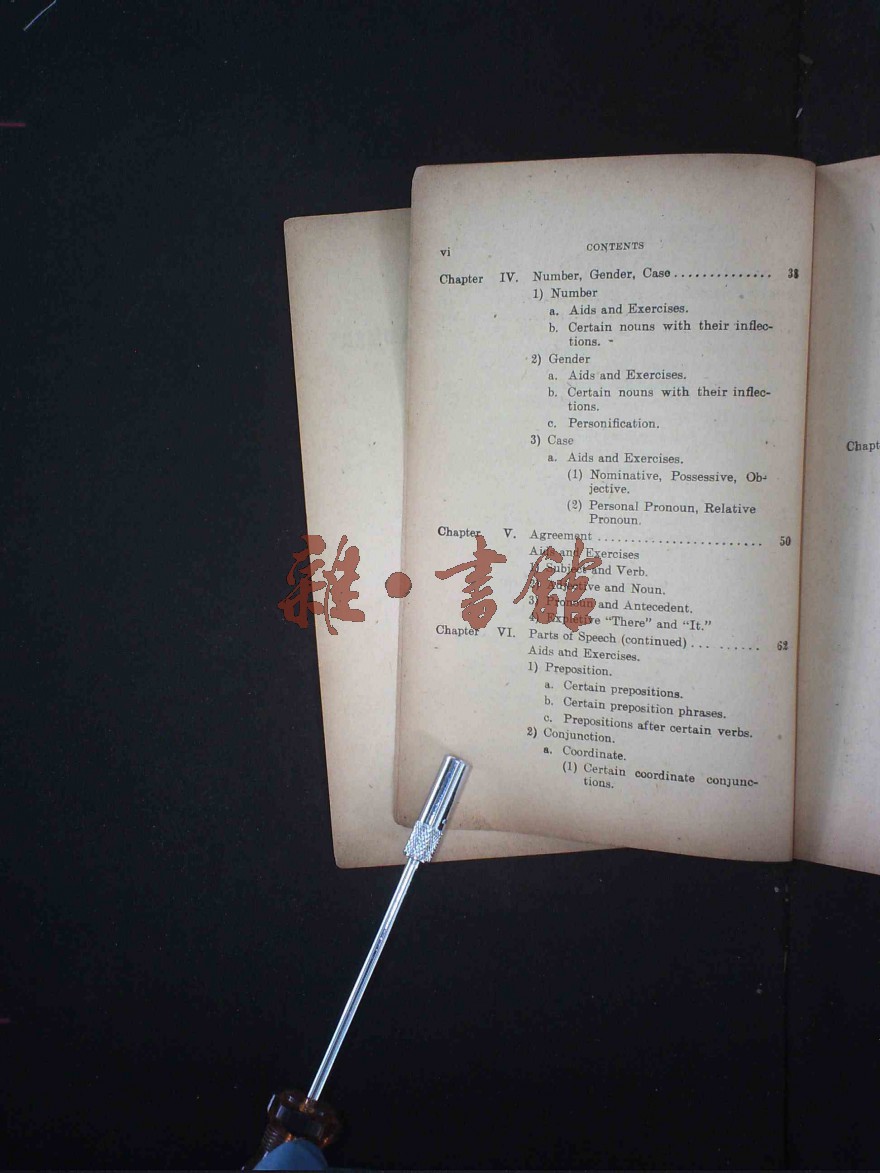 vi CONTENTS
Chapter IV. Number, Gender, Case.............. 38
1) Number
a. Aids and Exercises.
b. Certain nouns with their inflec-
tions.
2) Gender
a. Aids and Exercises.
b. Certain nouns with their inflec-
tions.
c. Personification.
3) Case
a. Aids and Exercises.
(1) Nominative, Possessive, Ob-
jective.
(2) Personal Pronoun, Relative
Pronoun.
Chapter V. Agreement ........................ 50
Aids and Exercises
1) Subject and Verb.
2) Adjective and Noun.
3) Pronoun and Antecedent.
4) Expletive “There” and “It.”
Chapter VI. Parts of Speech (continued) ... ...... 62
Aids and Exercises.
1) Preposition.
a. Certain prepositions.
b. Certain preposition phrases.
c. Prepositions after certain verbs.
2) Conjunction.
a. Coordinate.
(1) Certain coordinate conjunc-
tions.
Chapt
雜·書館